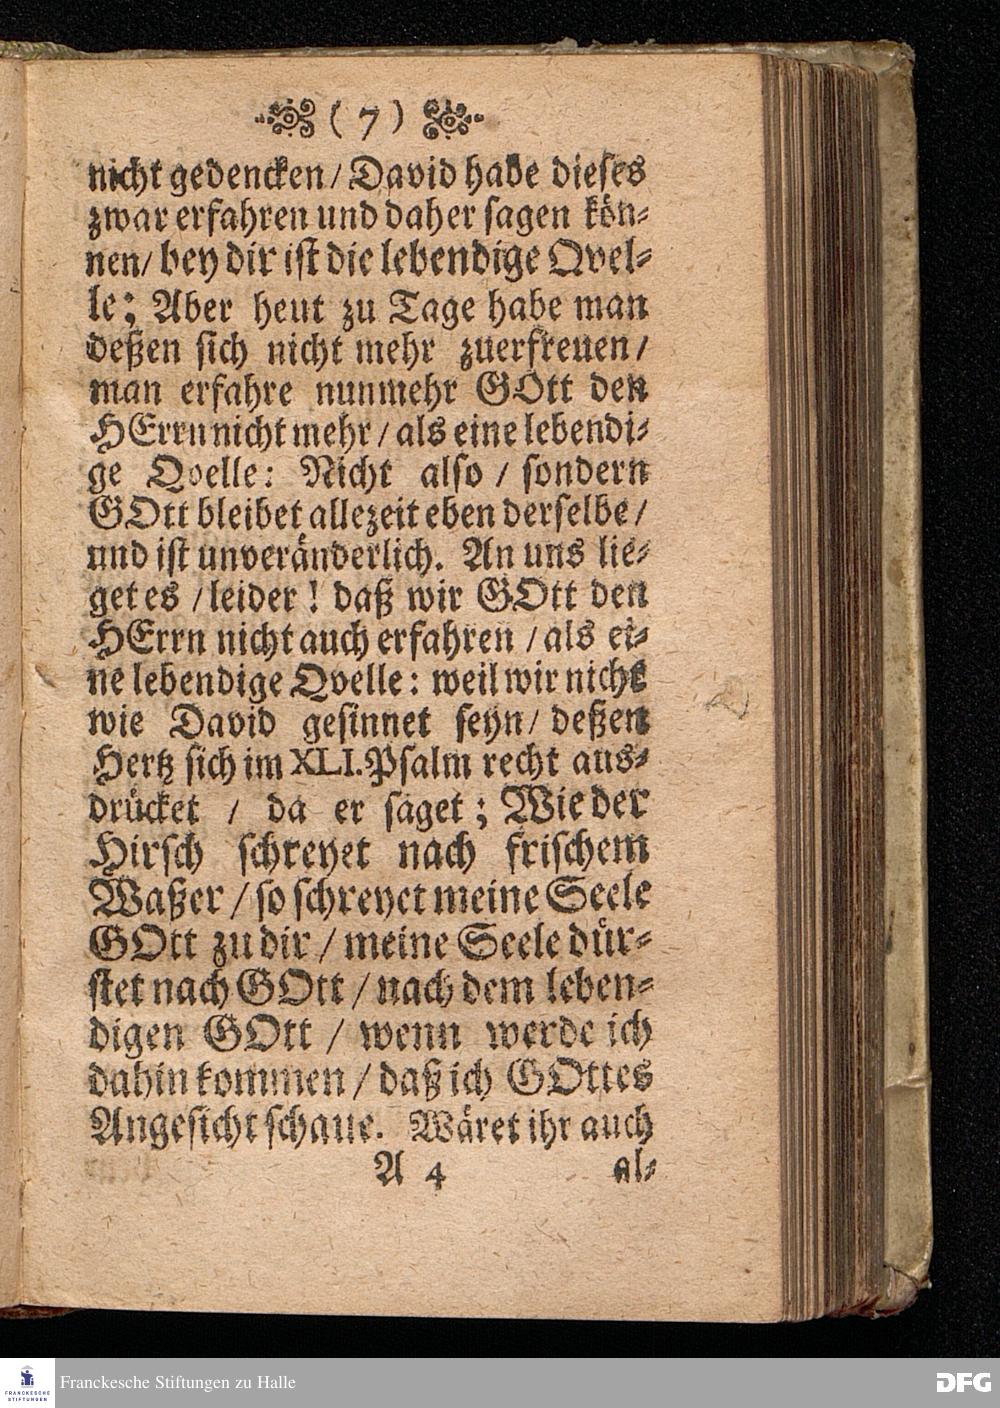 ( 7 )
nicht gedencken / David habe dieses
zwar erfahren und daher sagen kön-
nen / bey dir ist die lebendige Qvel-
le; Aber heut zu Tage habe man
deßen sich nicht mehr zuerfreuen /
man erfahre nunmehr GOtt den
HErrn nicht mehr / als eine lebendi-
ge Qvelle: Nicht also / sondern
GOtt bleibet allezeit eben derselbe /
und ist unveränderlich. An uns lie-
get es / leider ! daß wir GOtt den
HErrn nicht auch erfahren / als ei-
ne lebendige Qvelle: weil wir nicht
wie David gesinnet seyn / deßen
Hertz sich im XLI. Psalm recht aus-
drücket / da er saget ; Wie der
Hirsch schreyet nach frischem
Waßer / so schreyet meine Seele
GOtt zu dir / meine Seele dür-
stet nach GOtt / nach dem leben-
digen GOtt / wenn werde ich
dahin kommen / daß ich GOttes
Angesicht schaue. Wäret ihr auch
A 4 al-
FRANCKESCHE
STIFTUNGEN
Franckesche Stiftungen zu Halle
DFG